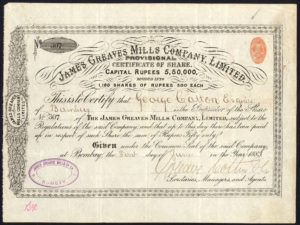 307
JAMES GREAVES MILLS COMPANY, LIMITED.
PROVISIONAL
CERTIFICATE OF SHARE.
CAPITAL RUPEES 5,50,000,
DIVIDED INTO
1,100 SHARES OF RUPEES 500 EACH
This is to Certify that George Cotton Esquire
of Bombay is the Proprietor of the Share
No 307 of THE JAMES GREAVES MILLS COMPANY, LIMITED, subject to the
Regulations of the said Company, and that up to this day there has been paid
up in respect of such Share the sum of Rupees Fifty only
Given under the Common Seal of the said Company,
at Bombay, the First day of June in the Year 1883
Secretaries, Managers and Agents.
BOMBAY